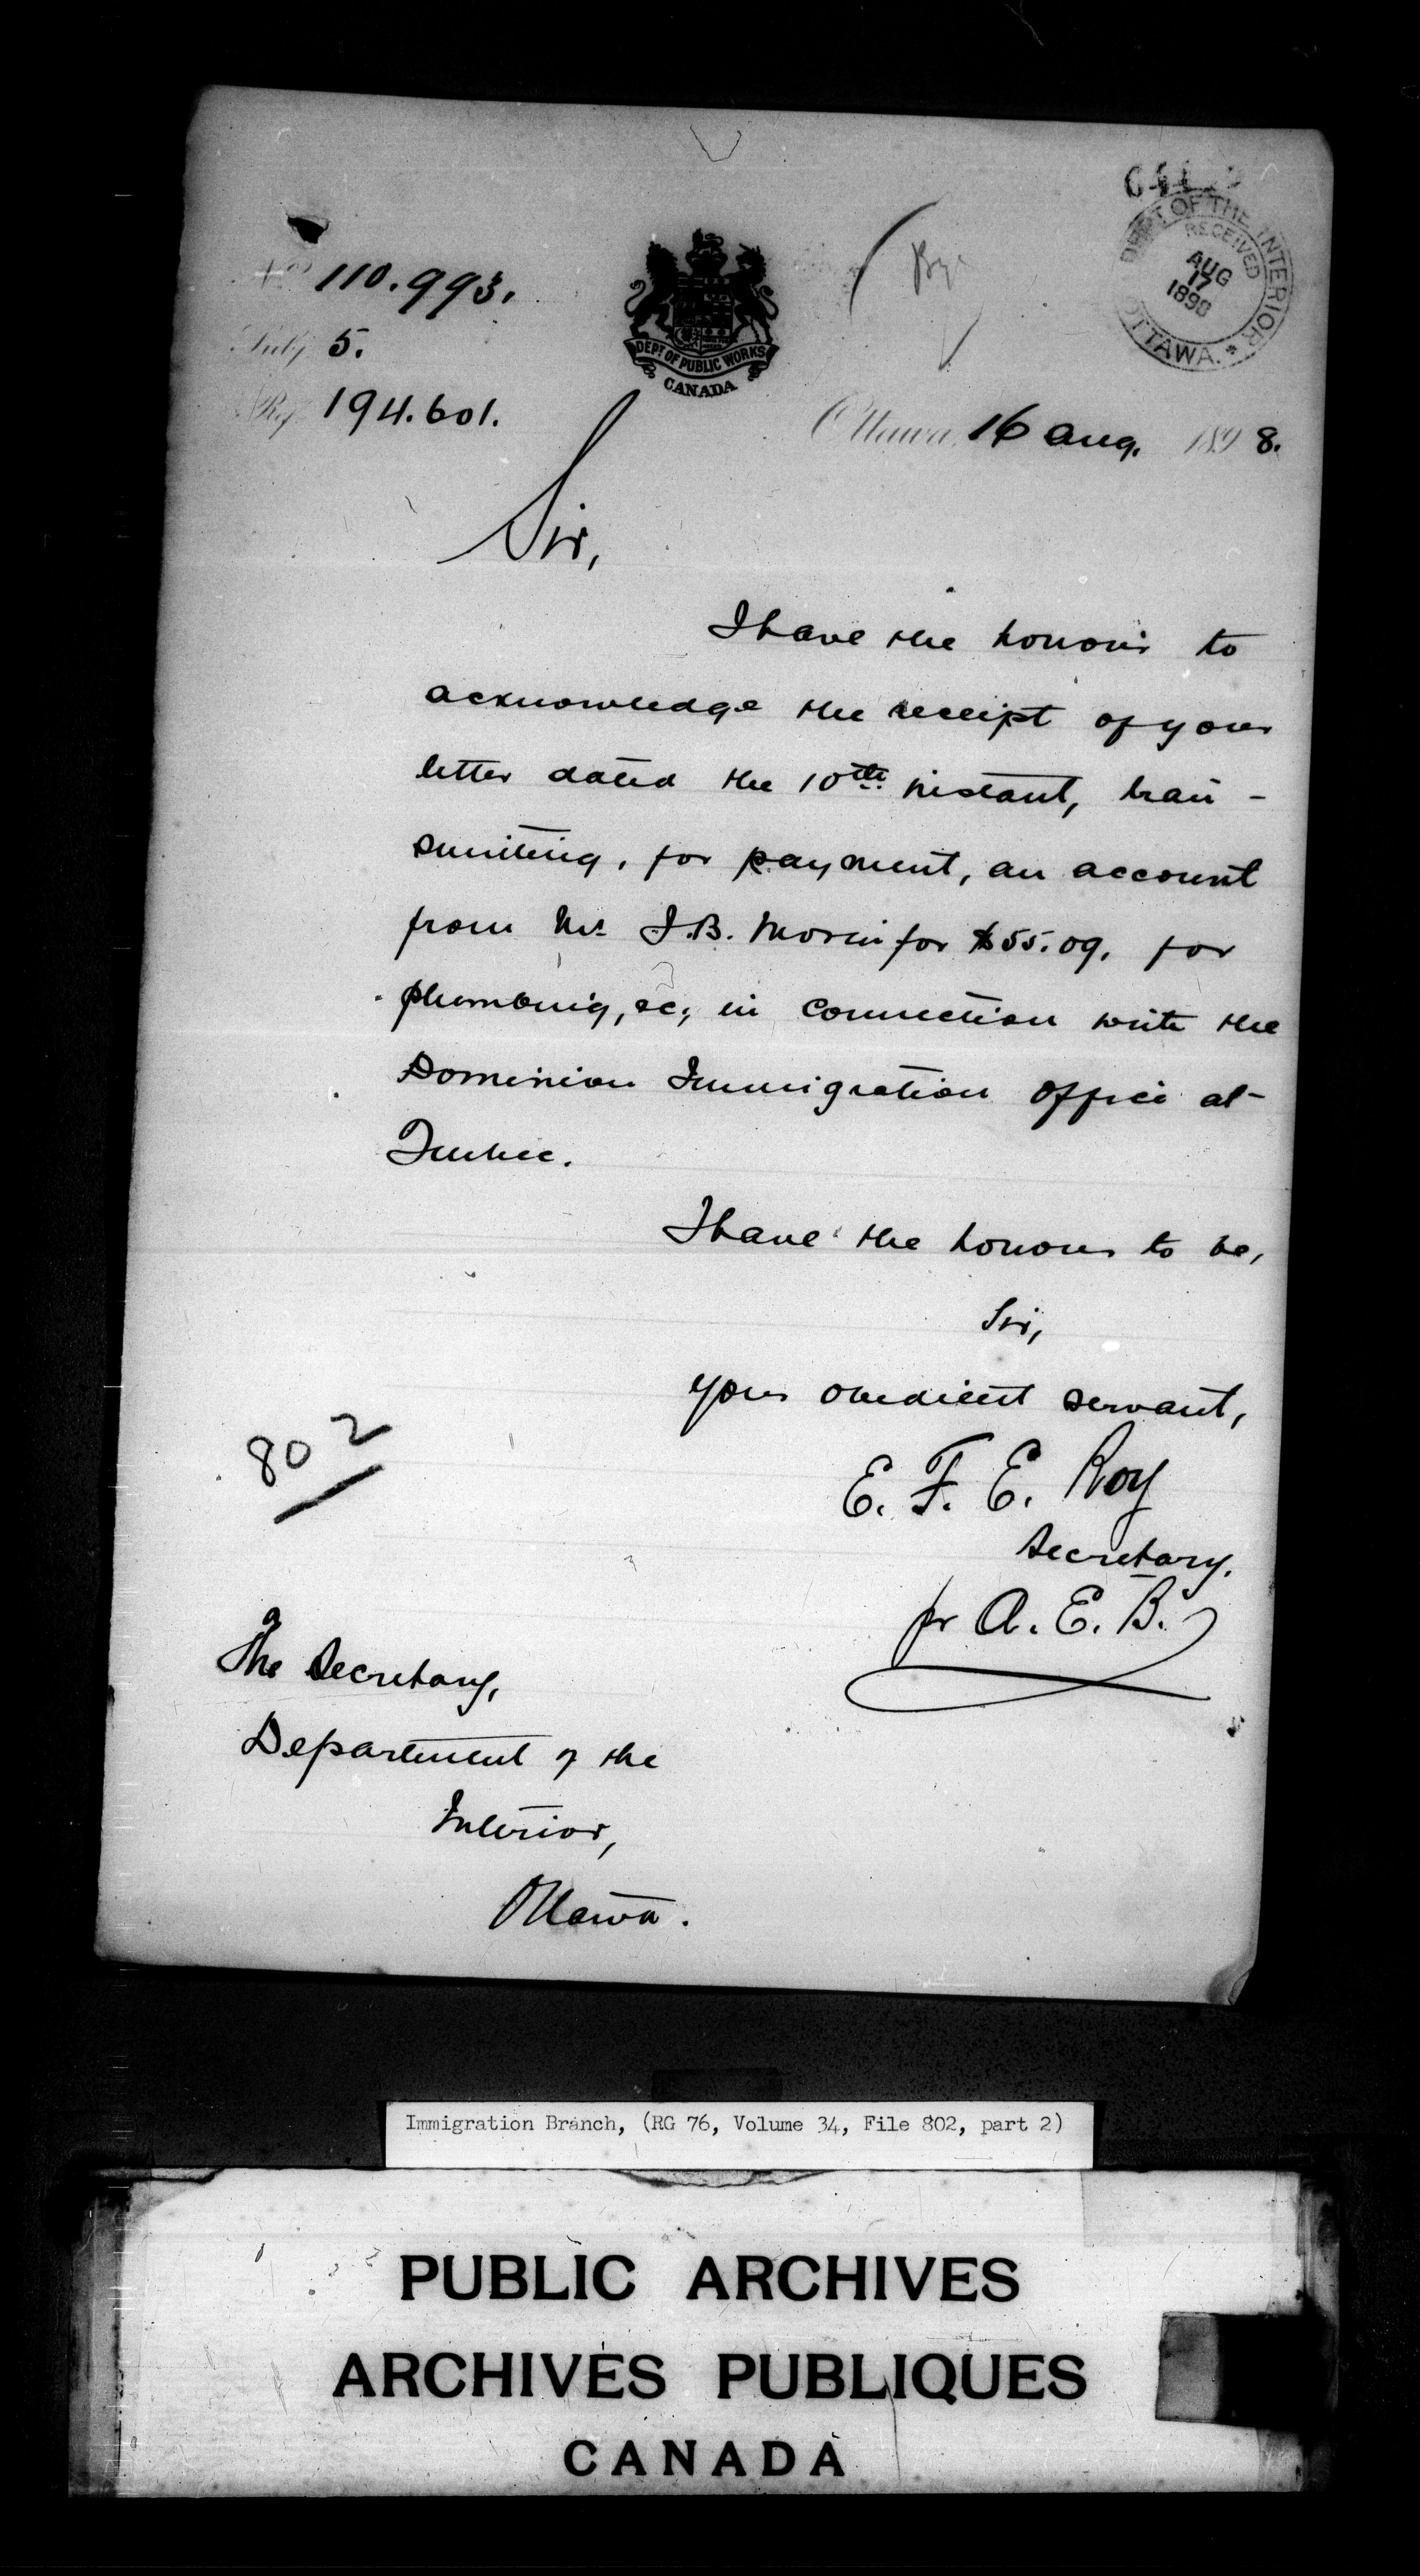 No 110.993.
Subj 5.
Ref 194.601.
DEPT OF PUBLIC WORKS
CANADA
DEPT OF THE INTERIOR
RECEIVED
AUG
17
1898
OTTAWA.
Ottawa, 16 Aug. 1898.
Sir,
I have the honour to
acknowledge the receipt of your
letter dated the 10th instant, tran-
smitting, for payment, an account
from Mr J.B. Morin for $55.09, for
plumbing, &c; in connection with the
Dominion Immigration Office at
Quebec.
I have the honour to be,
Sir,
your obedient servant,
E. F. E. Roy
Secretary.
pr A. E. B.
802
The Secretary,
Department of the
Interior,
Ottawa.
Immigration Branch, (RG 76, Volume 34, File 802, part 2)
PUBLIC ARCHIVES
ARCHIVES PUBLIQUES
CANADA